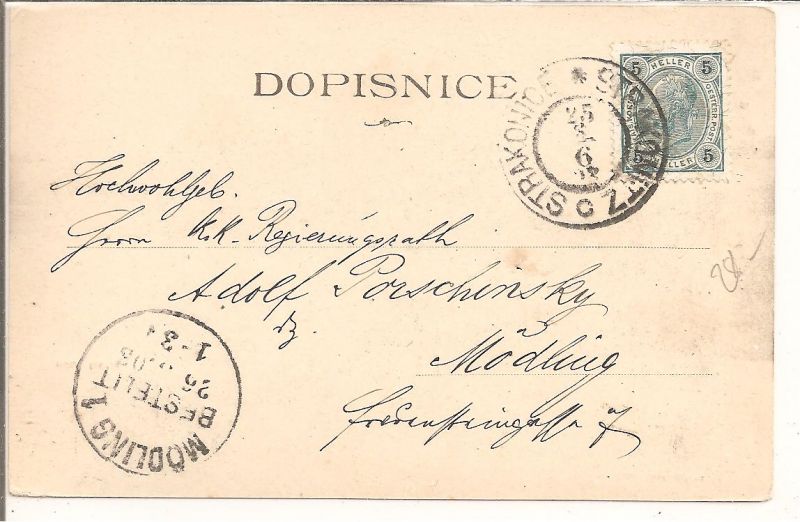 DOPISNICE
STRAKONICE * STRAKONITZ C
25
6
5 HELLER 5
OESTERR. POST
5 HELLER 5
Hochwohlgeb.
Herrn K.K. Regierungsrath
Adolf Porschinsky
in
Mödling
7
28.–
MÖDLING 1
BESTELLT
26
1-3